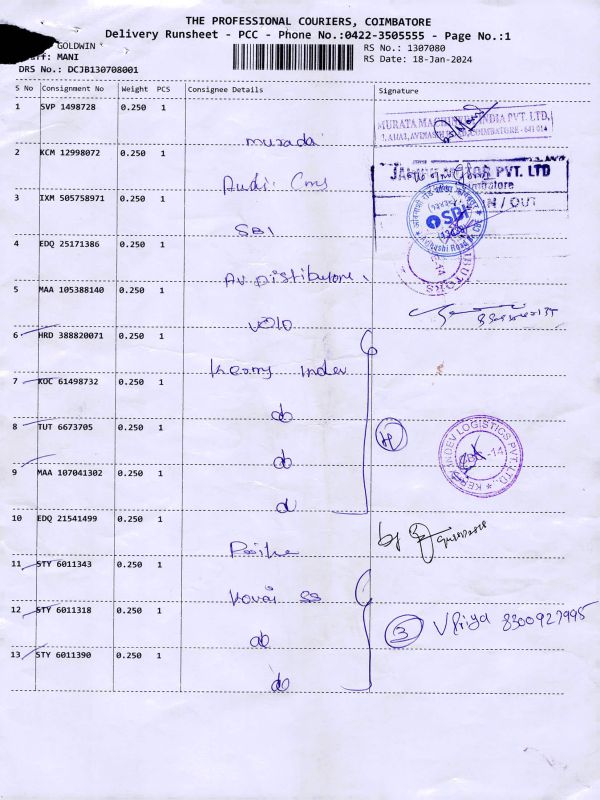 THE PROFESSIONAL COURIERS, COIMBATORE
Delivery Runsheet - PCC - Phone No.:0422-3505555 - Page No.:1
GOLDWIN
RS No.: 1307080
MANI
RS Date: 18-Jan-2024
DRS No.: DCJB130708001
S No Consignment No Weight PCS Consignee Details Signature
1 SVP 1498728 0.250 1
MURATA MACHINERY INDIA PVT. LTD.
COIMBATORE - 641 014
murada
2 KCM 12998072 0.250 1
Audi. Cms
PVT. LTD
IN / OUT
3 IXM 505758971 0.250 1
SBI
SBI
Avinashi Road
4 EDQ 25171386 0.250 1
AV. Distibutore.
5 MAA 105388140 0.250 1
6 HRD 388820071 0.250 1
Kerry Indev
7 KOC 61498732 0.250 1
do
8 TUT 6673705 0.250 1
4
KERRY INDEV LOGISTICS PVT. LTD.
do
9 MAA 107041302 0.250 1
do
10 EDQ 21541499 0.250 1
11 STY 6011343 0.250 1
Kovai SS
12 STY 6011318 0.250 1
3 V Priya 8300927995
do
13 STY 6011390 0.250 1
do